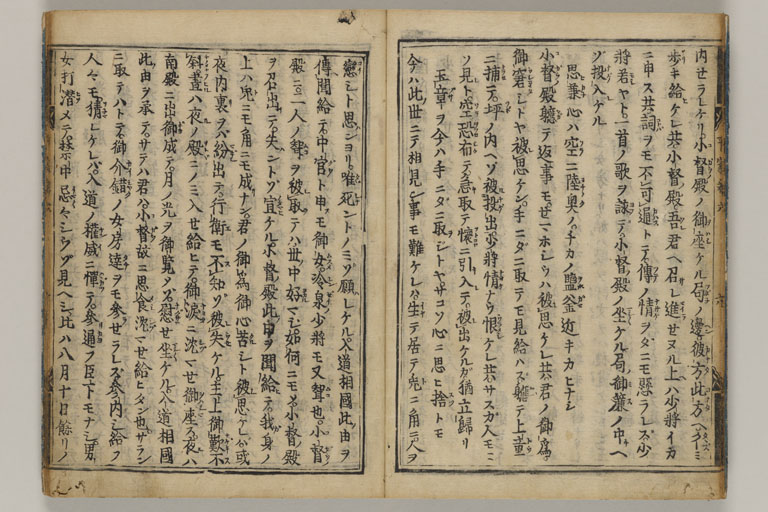 内セラレケリ小督殿ノ御座ケル局ノ邊彼方此方ヘタヽスミ
歩キ給ケレ共小督殿吾君ヘ召レ進セヌル上ハ少將イカ
ニ申ス共詞ヲモ不可通トテ傳ノ情ヲダニモ懸ラレズ少
將若ヤト一首ノ歌ヲ詠テ小督殿ノ坐ケル局御簾ノ中ヘ
ゾ投入ケル
思兼心ハ空ニ陸奥ノチカノ鹽釜近キカヒナシ
小督殿軈テ返事モセマホシウハ被思ケレ共君ノ御爲
御窘シトヤ被思ケン手ニダニ取テモ見給ハズ軈テ上童
ニ捕テ坪ノ内ヘゾ被投出少將情ナウ恨ケレ共サスガ人モコ
ソ見ト空恐布テ急取テ懐ニ引入テ被出ケルガ猶立歸リ
玉章ヲ今ハ手ニダニ取ジトヤサコソ心ニ思ヒ捨トモ
今ハ此世ニテ相見ン事モ難ケレハ生テ居テ兎ニ角ニ人ヲ
戀シト思ンヨリ唯死ントノミゾ願レケル入道相國此由ヲ
傳聞給テ中宮ト申モ御女冷泉少將モ又聟也小督
殿ニ二人ノ聟ヲ被取テハ世中好マジ如何ニモシテ小督殿
ヲ召出テ失ントゾ宣ケル小督殿此由ヲ聞給テ我身ノ
上ハ兎モ角モ成ナン君ノ御爲御心苦シト被思ケレハ或
夜内裏ヲバ紛出テ行衞モ不知ゾ被失ケル主上御歎不
斜晝ハ夜ノ殿ニノミ入セ給ヒテ御涙ニ沈マセ御座ス夜ハ
南殿ニ出御成テ月ノ光ヲ御覧ゾ慰セ坐ケル入道相國
此由ヲ承テサテハ君ハ小督故ニ思食沈マセ給ヒタン也サラン
ニ取テハトテ御介錯ノ女房達ヲモ參セラレズ參内シ給フ
人々モ猜レケレバ入道ノ權威ニ憚テ參通フ臣下モナシ男
女打潜メテ禁中忌々シウゾ見ヘシ比ハ八月十日餘リノ